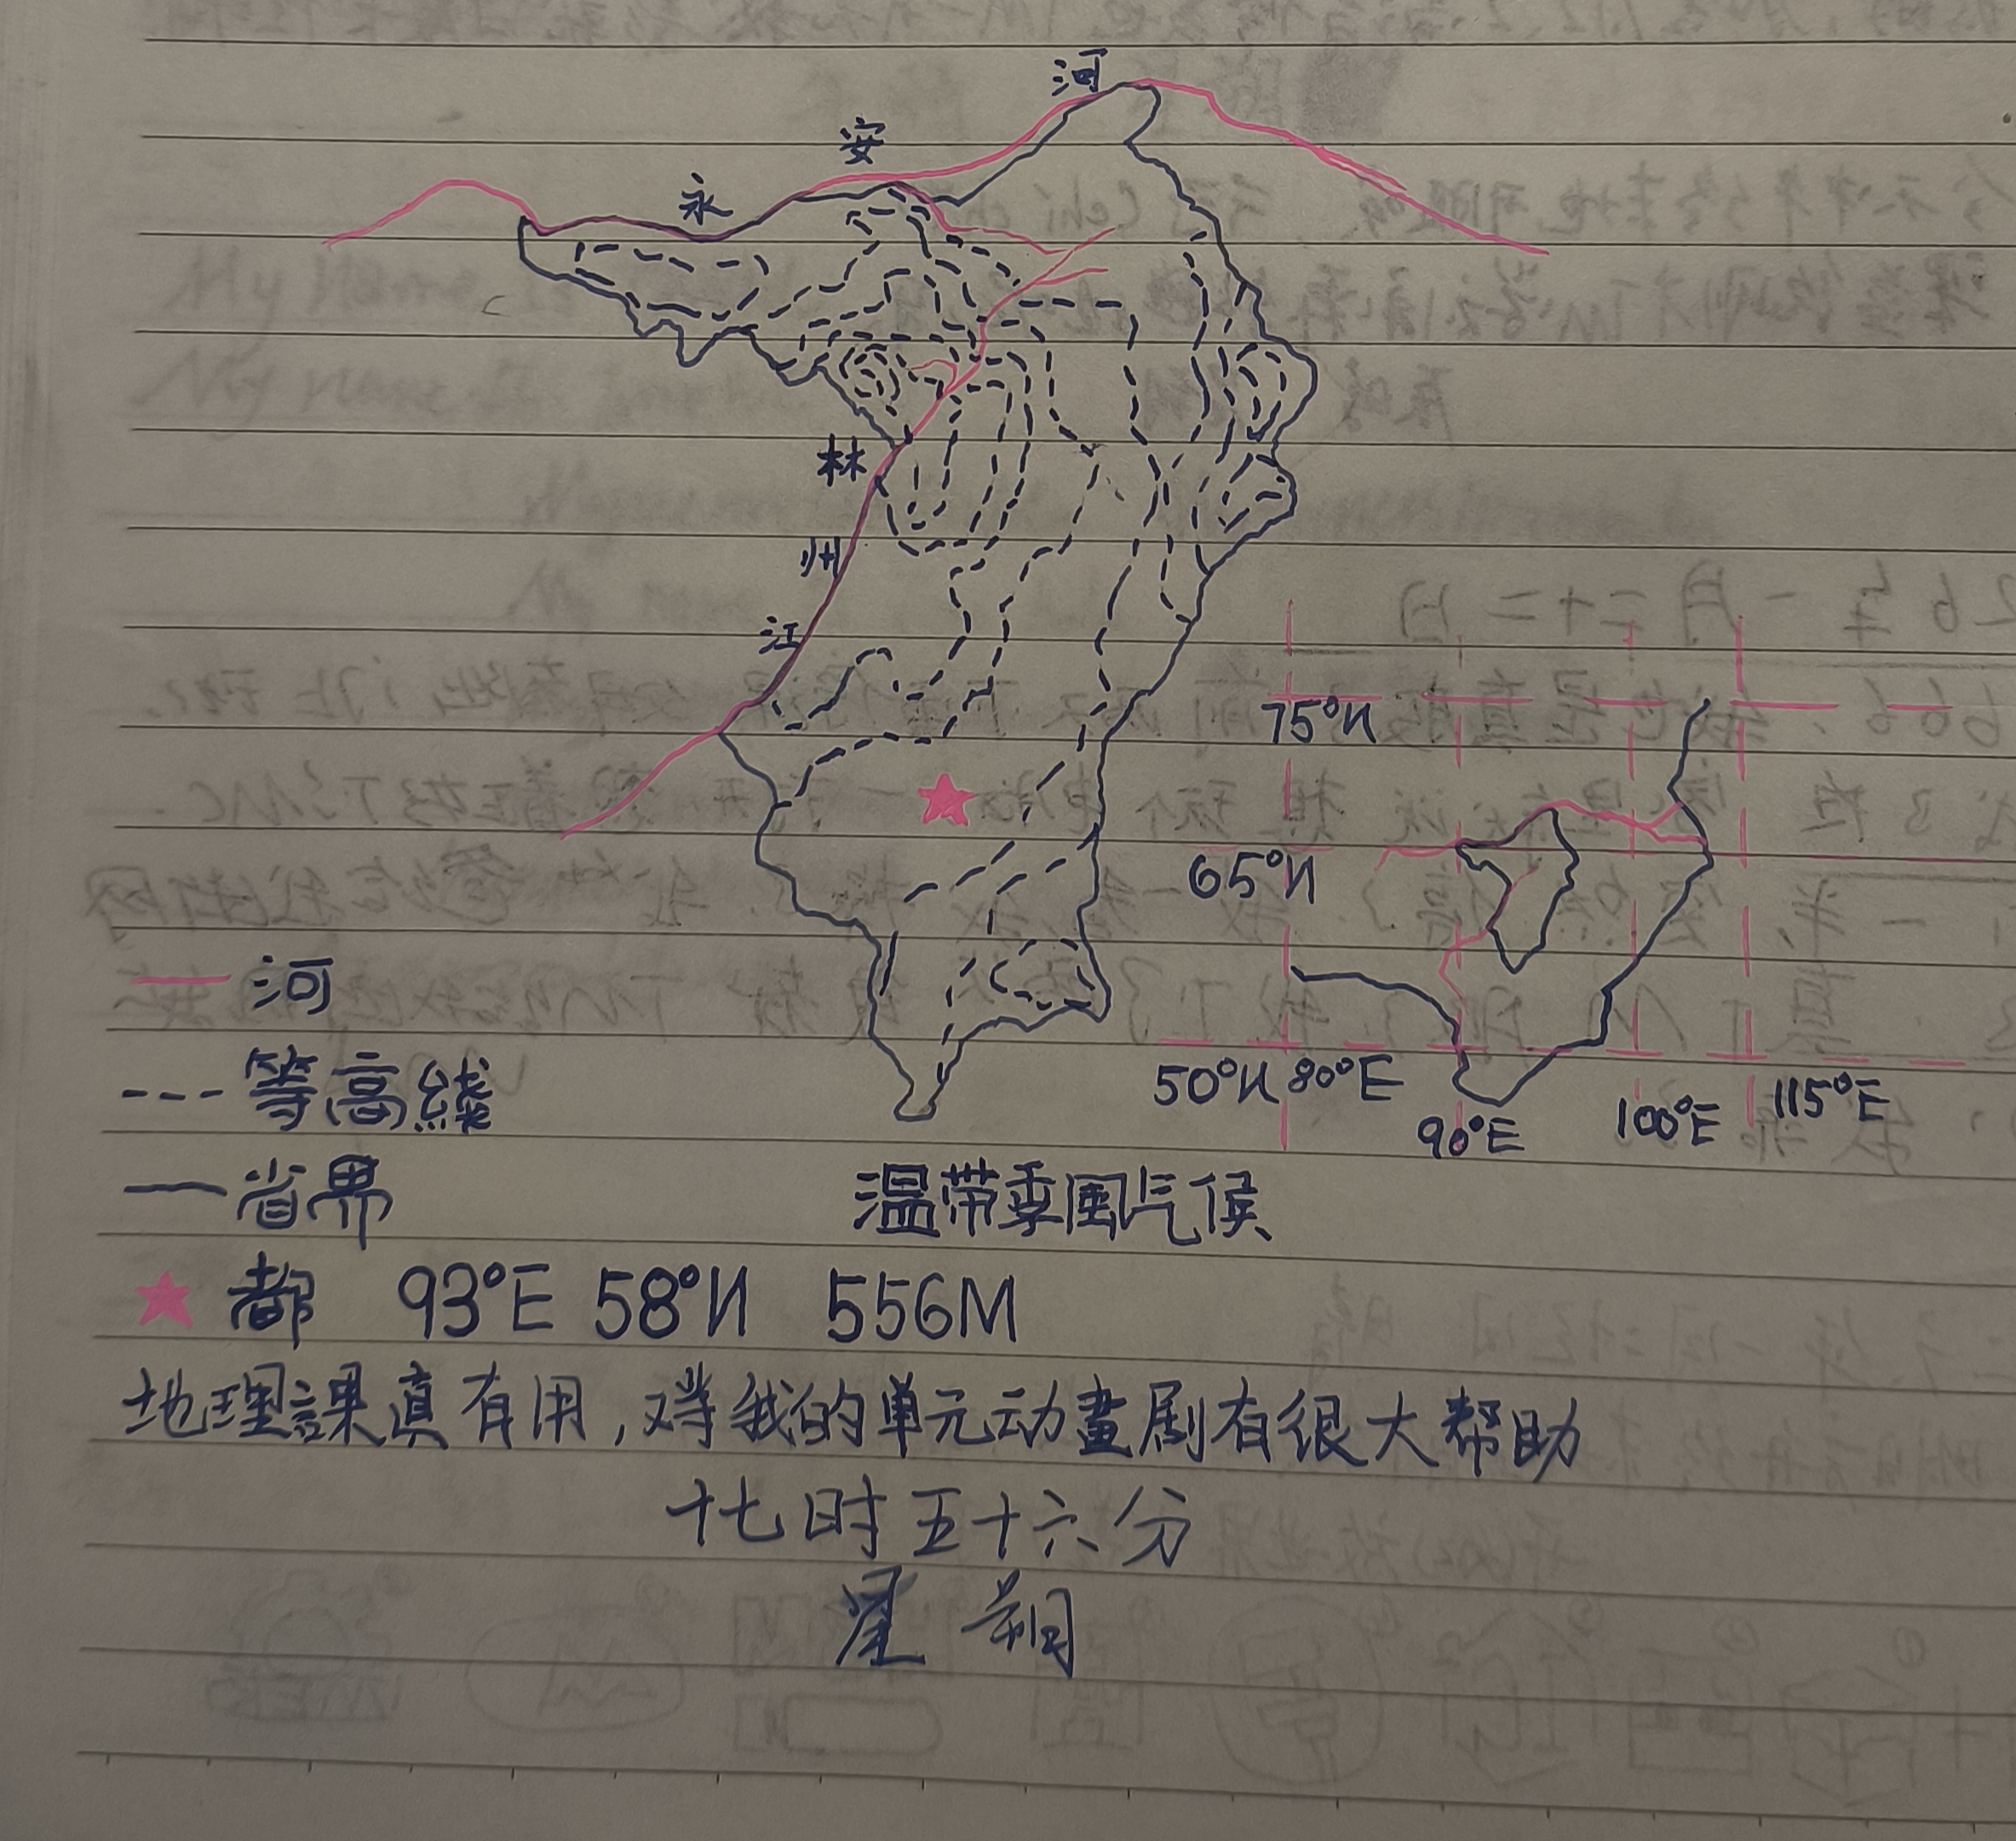 河
安
永
林
州
江
75°N
65°N
50°N 80°E
90°E
100°E
115°E
河
等高綫
省界
温带季風气候
都 93°E 58°N 556M
地理課真有用,对我的单元动畫剧有很大帮助
十七时五十六分